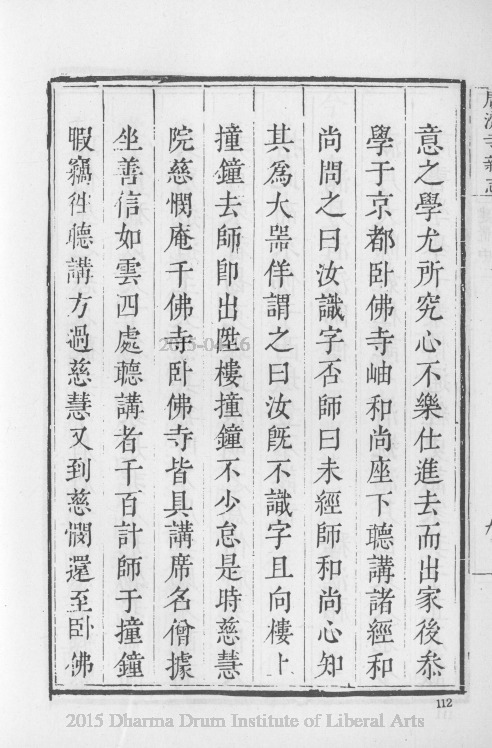 意之學尤所究心不樂仕進去而出家後叅
學于京都卧佛寺岫和尚座下聽講諸經和
尚問之曰汝識字否師曰未經師和尚心知
其爲大噐佯謂之曰汝旣不識字且向樓上
撞鐘去師卽出陞樓撞鐘不少怠是時慈慧
院慈憫庵千佛寺卧佛寺皆具講席名僧據
坐善信如雲四處聽講者千百計師于撞鐘
暇竊徃聽講方過慈慧又到慈憫還至卧佛
112
2015 Dharma Drum Institute of Liberal Arts